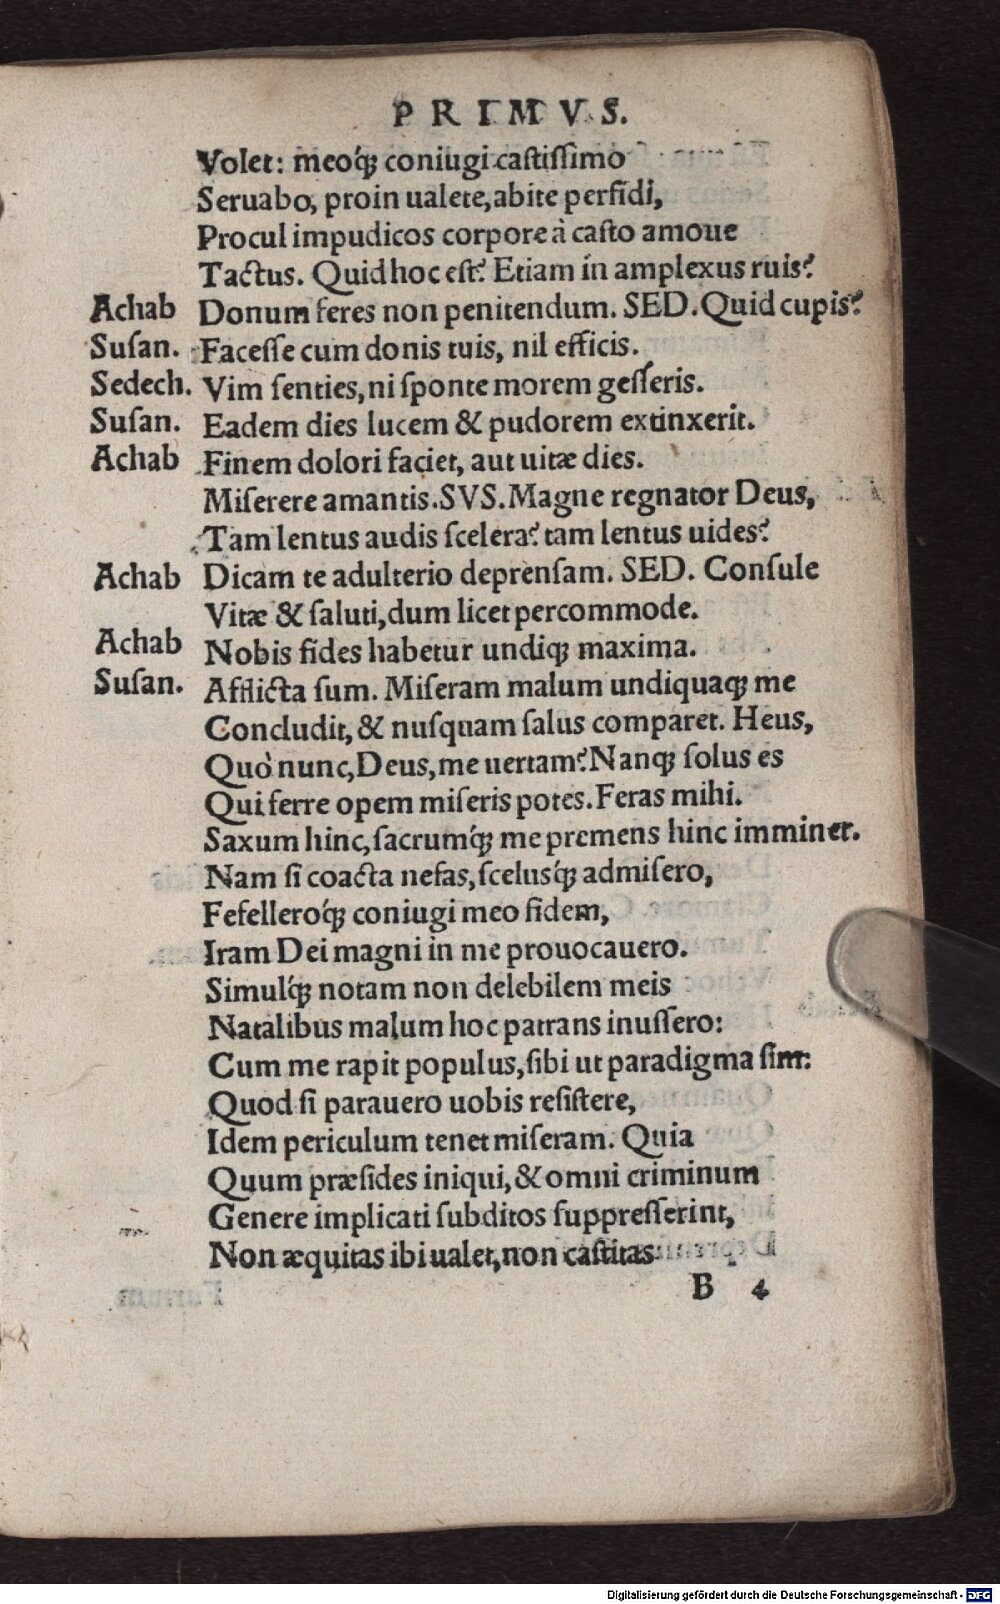 PRIMVS.
Volet: meoq́ꝫ coniugi castiſsimo
Seruabo, proin ualete, abite perfidi,
Procul impudicos corpore à casto amoue
Tactus. Quid hoc est? Etiam in amplexus ruis?
Achab Donum feres non penitendum. SED. Quid cupis?
Suſan. Faceſſe cum donis tuis, nil efficis.
Sedech. Vim ſenties, ni ſponte morem geſſeris.
Suſan. Eadem dies lucem & pudorem extinxerit.
Achab Finem dolori faciet, aut uitæ dies.
Miſerere amantis. SVS. Magne regnator Deus,
Tam lentus audis ſcelera? tam lentus uides?
Achab Dicam te adulterio deprenſam. SED. Conſule
Vitæ & ſaluti, dum licet percommode.
Achab Nobis fides habetur undiqꝫ maxima.
Suſan. Afflicta ſum. Miſeram malum undiquaqꝫ me
Concludit, & nuſquam ſalus comparet. Heus,
Quò nunc, Deus, me uertam? Nanqꝫ ſolus es
Qui ferre opem miſeris potes. Feras mihi.
Saxum hinc, ſacrumq́ꝫ me premens hinc imminet.
Nam ſi coacta nefas, ſcelusq́ꝫ admiſero,
Fefelleroq́ꝫ coniugi meo fidem,
Iram Dei magni in me prouocauero.
Simulq́ꝫ notam non delebilem meis
Natalibus malum hoc patrans inuſſero:
Cum me rapit populus, ſibi ut paradigma ſim:
Quod ſi parauero uobis reſistere,
Idem periculum tenet miſeram. Quia
Quum præſides iniqui, & omni criminum
Genere implicati ſubditos ſuppreſſerint,
Non æquitas ibi ualet, non castitas
B 4
Digitalisierung gefördert durch die Deutsche Forschungsgemeinschaft - DFG